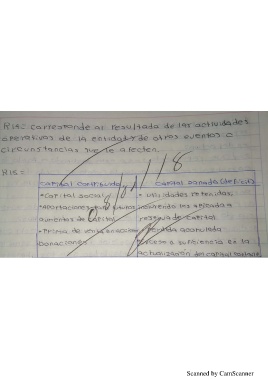 R15= Corresponde al resultado de las actividades
operativas de la entidad y de otros eventos o
circunstancias que le afecten.
R16=
Capital contribuido Capital ganado (deficit)
• Capital social • Utilidades retenidas,
• Aportaciones para futuros incluyendo las aplicadas a
aumentos de capital reservas de capital
• Prima de venta acciones • Perdida acumulada
Donaciones Exceso o suficiencia en la
actualización del capital contable
08/11/18
Scanned by CamScanner